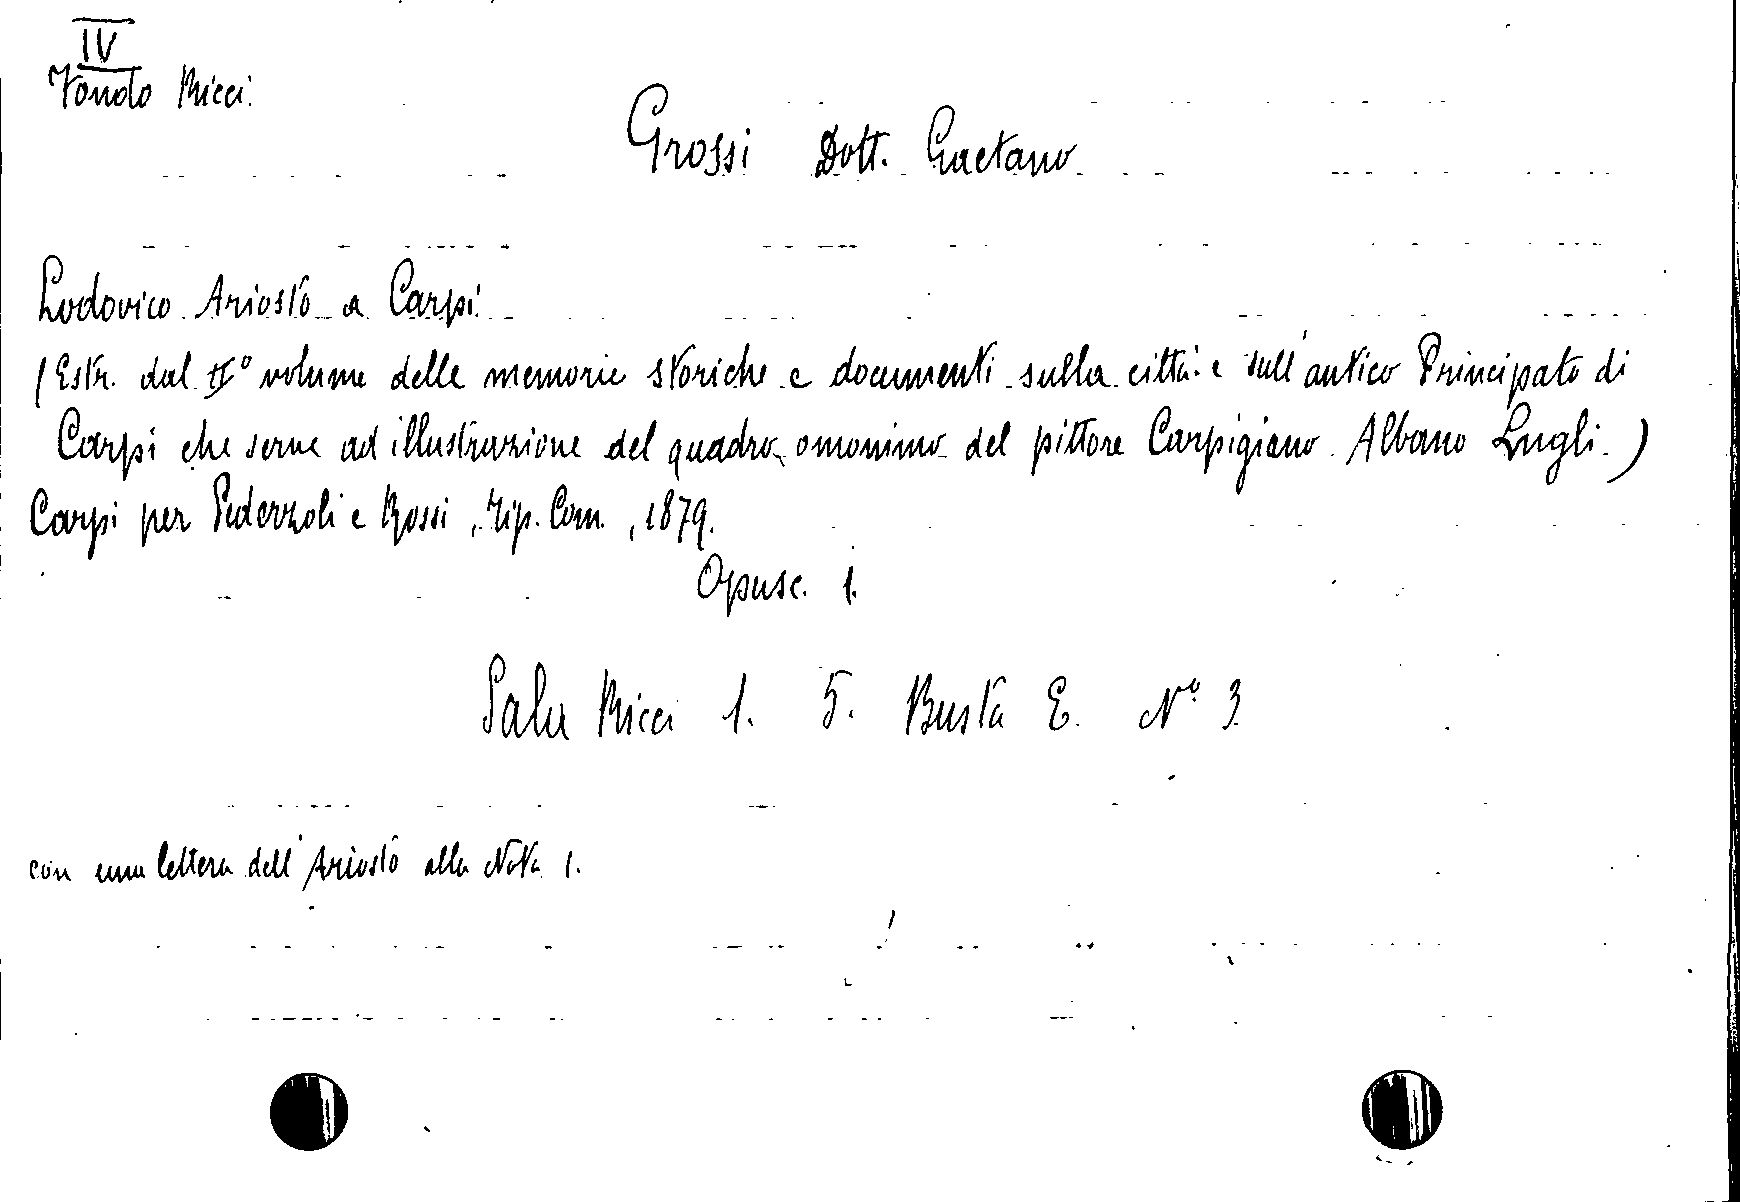 IV
Fondo Ricci.
Grossi Dott. Gaetano
Lodovico Ariosto a Carpi
(Estr. dal II° volume delle memorie storiche e documenti sulla città e sull'antico Principato di
Carpi che serve ad illustrazione del quadro omonimo del pittore Carpigiano Albano Lugli.)
Carpi per Pederzoli e Rossi, Tip. Com., 1879.
Opusc. 1.
Sala Ricci 1. 5. Busta E. N° 3
con una lettera dell'Ariosto alla Nota 1.